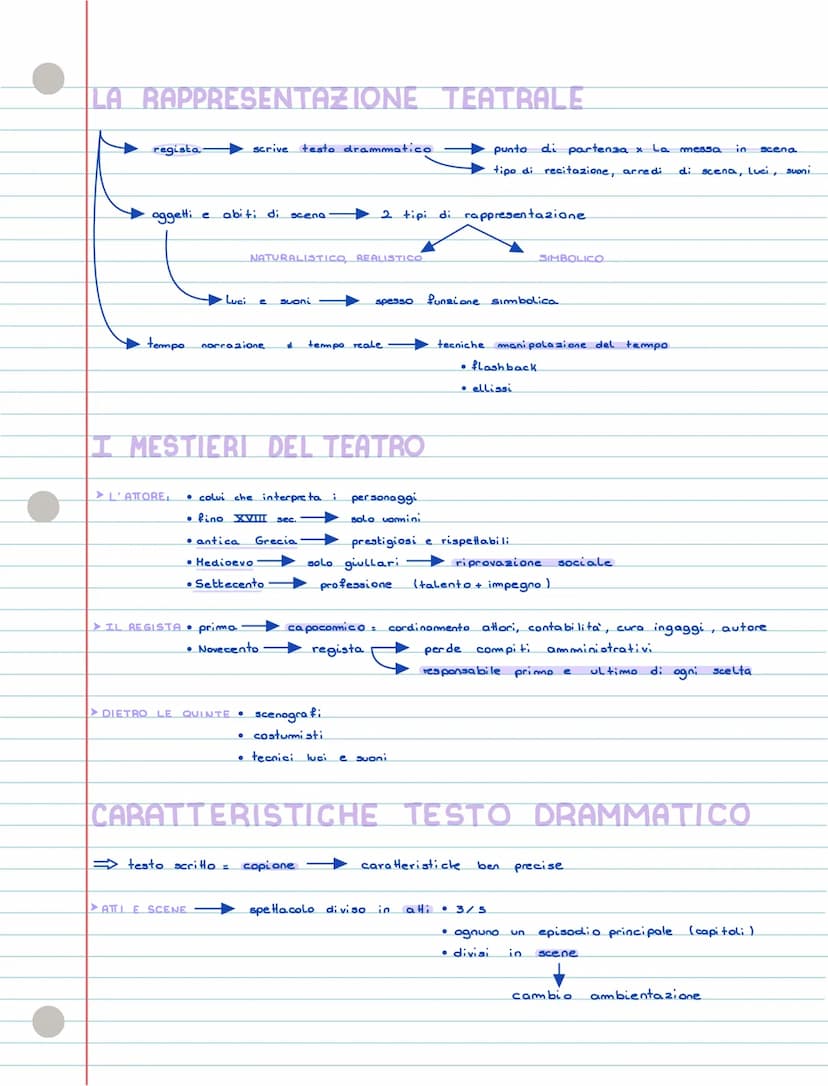 LA RAPPRESENTAZIONE TEATRALE
regista → scrive testo drammatico → punto di partenza x la messa in scena
→ tipo di recitazione, arredi di scena, luci, suoni
oggetti e abiti di scena → 2 tipi di rappresentazione
NATURALISTICO, REALISTICO SIMBOLICO
luci e suoni → spesso funzione simbolica
tempo narrazione ≠ tempo reale → tecniche manipolazione del tempo
• flashback
• ellissi
I MESTIERI DEL TEATRO
➤ L'ATTORE: • colui che interpreta i personaggi
• fino XVIII sec. → solo uomini
• antica Grecia → prestigiosi e rispettabili
• Medioevo → solo giullari → riprovazione sociale
• Settecento → professione (talento + impegno)
➤ IL REGISTA • prima → capocomico = cordinamento attori, contabilità, cura ingaggi, autore
• Novecento → regista → perde compiti amministrativi
→ responsabile primo e ultimo di ogni scelta
➤ DIETRO LE QUINTE • scenografi
• costumisti
• tecnici luci e suoni
CARATTERISTICHE TESTO DRAMMATICO
⇒ testo scritto = copione → caratteristiche ben precise
➤ ATTI E SCENE → spettacolo diviso in atti • 3/5
• ognuno un episodio principale (capitoli)
• divisi in scene
↓
cambio ambientazione